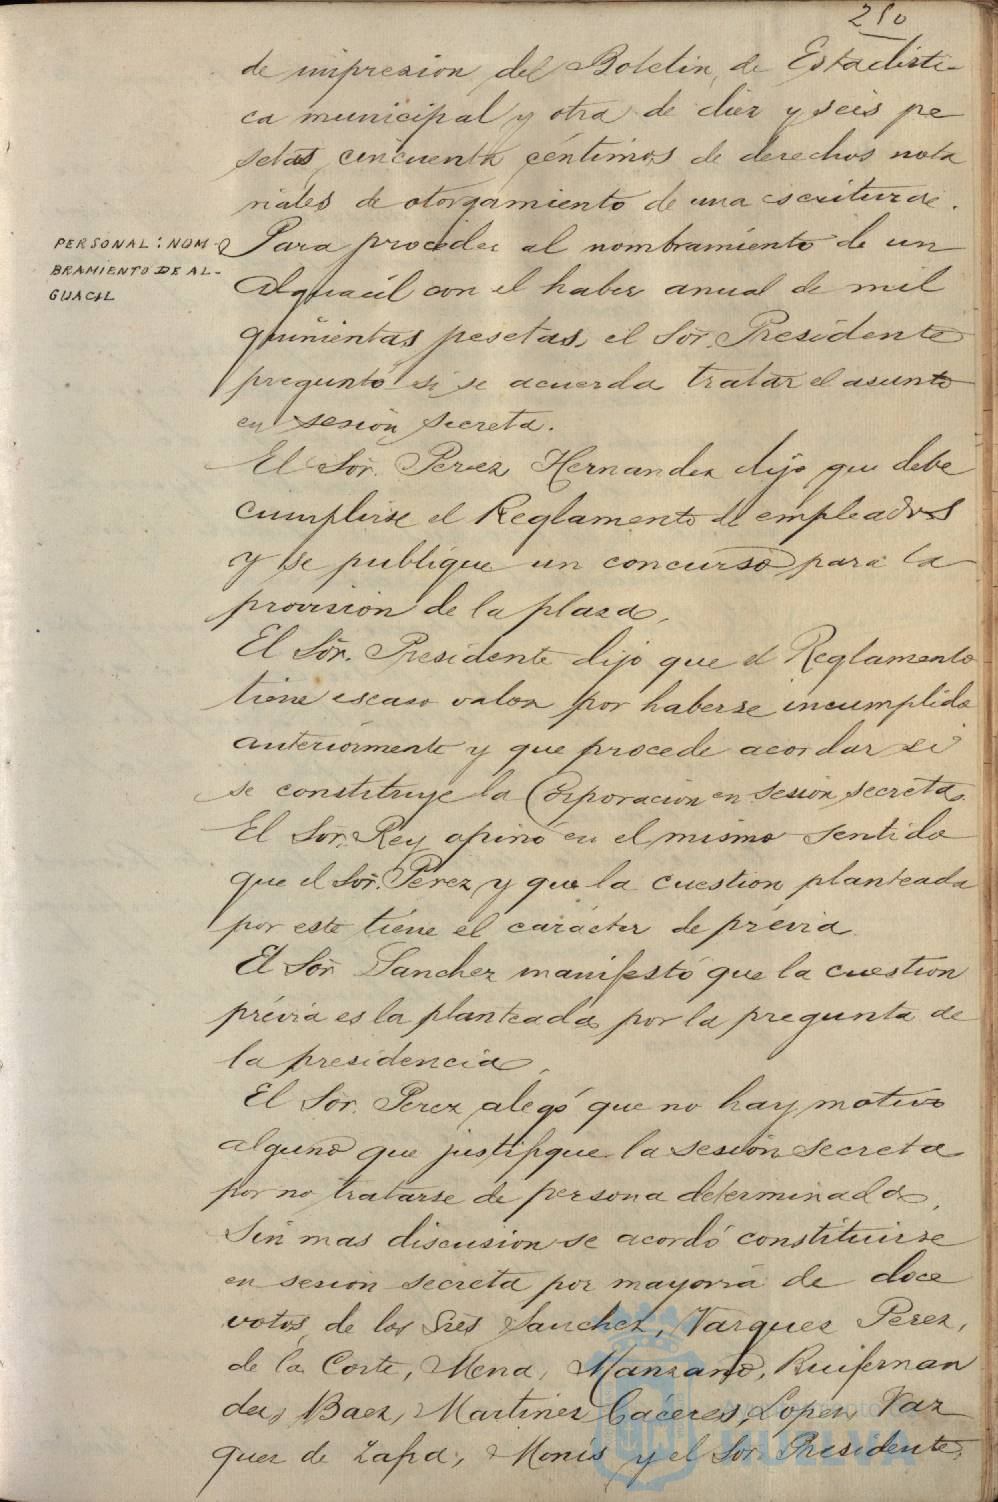 210
de impresion del Boletin de Estadisti-
ca municipal y otra de diez y seis pe
setas cincuenta céntimos de derechos nota
riales de otorgamiento de una escritura.
PERSONAL: NOM-
BRAMIENTO DE AL-
GUACIL
Para proceder al nombramiento de un
Alguacil con el haber anual de mil
quinientas pesetas, el Sor. Presidente
preguntó si se acuerda tratar el asunto
en sesión secreta.
El Sor. Perez Hernandez dijo que debe
cumplirse el Reglamento de empleados
y se publique un concurso para la
provision de la plaza.
El Sor. Presidente dijo que el Reglamento
tiene escaso valor por haberse incumplido
anteriormente y que procede acordar si
se constituye la Corporacion en sesion secreta.
El Sor. Rey opinó en el mismo sentido
que el Sor. Perez y que la cuestion planteada
por este tiene el carácter de prévia
El Sor. Sanchez manifestó que la cuestion
prévia es la planteada por la pregunta de
la presidencia.
El Sor. Perez alegó que no hay motivo
alguno que justifique la sesión secreta
por no tratarse de persona determinada.
Sin mas discusion se acordó constituirse
en sesion secreta por mayoria de doce
votos de los Sres Sanchez, Vazquez Perez,
de la Corte, Mena, Manzano, Ruifernan
dez, Baez, Martinez Cáceres, Lopez, Vaz
quez de Zafra, Monis y el Sor. Presidente,
Ayuntamiento de
HUELVA